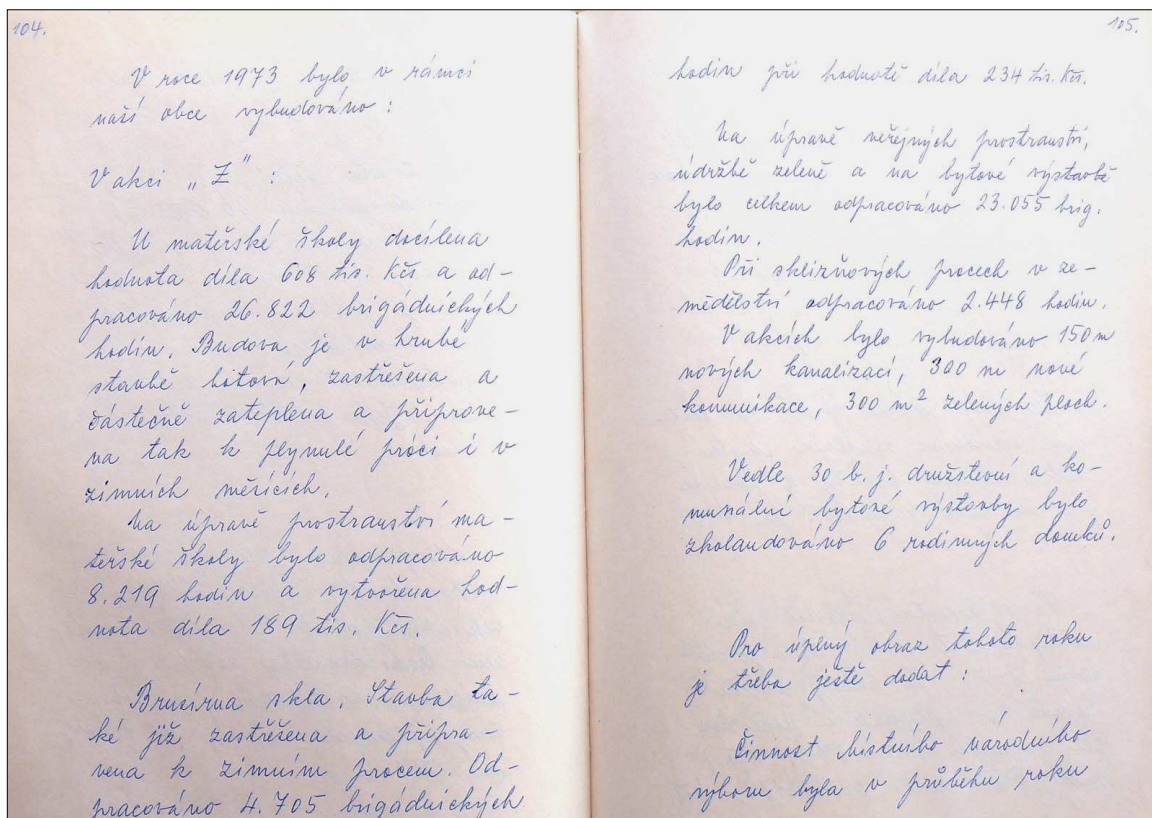 104.
V roce 1973 bylo v rámci
naší obce vybudováno :
V akci „Z" :
U mateřské školy docílena
hodnota díla 608 tis. Kčs a od-
pracováno 26.822 brigádnických
hodin. Budova je v hrubé
stavbě hotová, zastřešena a
částečně zateplena a připrave-
na tak k plynulé práci i v
zimních měsících.
Na úpravě prostranství ma-
teřské školy bylo odpracováno
8.219 hodin a vytvořena hod-
nota díla 189 tis. Kčs.
Brusírna skla. Stavba ta-
ké již zastřešena a připra-
vena k zimním pracem. Od-
pracováno 4.705 brigádnických
105.
hodin při hodnotě díla 234 tis. Kčs.
Na úpravě veřejných prostranství,
údržbě zeleně a na bytové výstavbě
bylo celkem odpracováno 23.055 brig.
hodin.
Při sklizňových pracech v ze-
mědělství odpracováno 2.448 hodin.
V akcích bylo vybudováno 150 m
nových kanalizací, 300 m nové
komunikace, 300 m² zelených ploch.
Vedle 30 b. j. družstevní a ko-
munální bytové výstavby bylo
zkolaudováno 6 rodinných domků.
Pro úplný obraz tohoto roku
je třeba ještě dodat :
Činnost Místního národního
výboru byla v průběhu roku